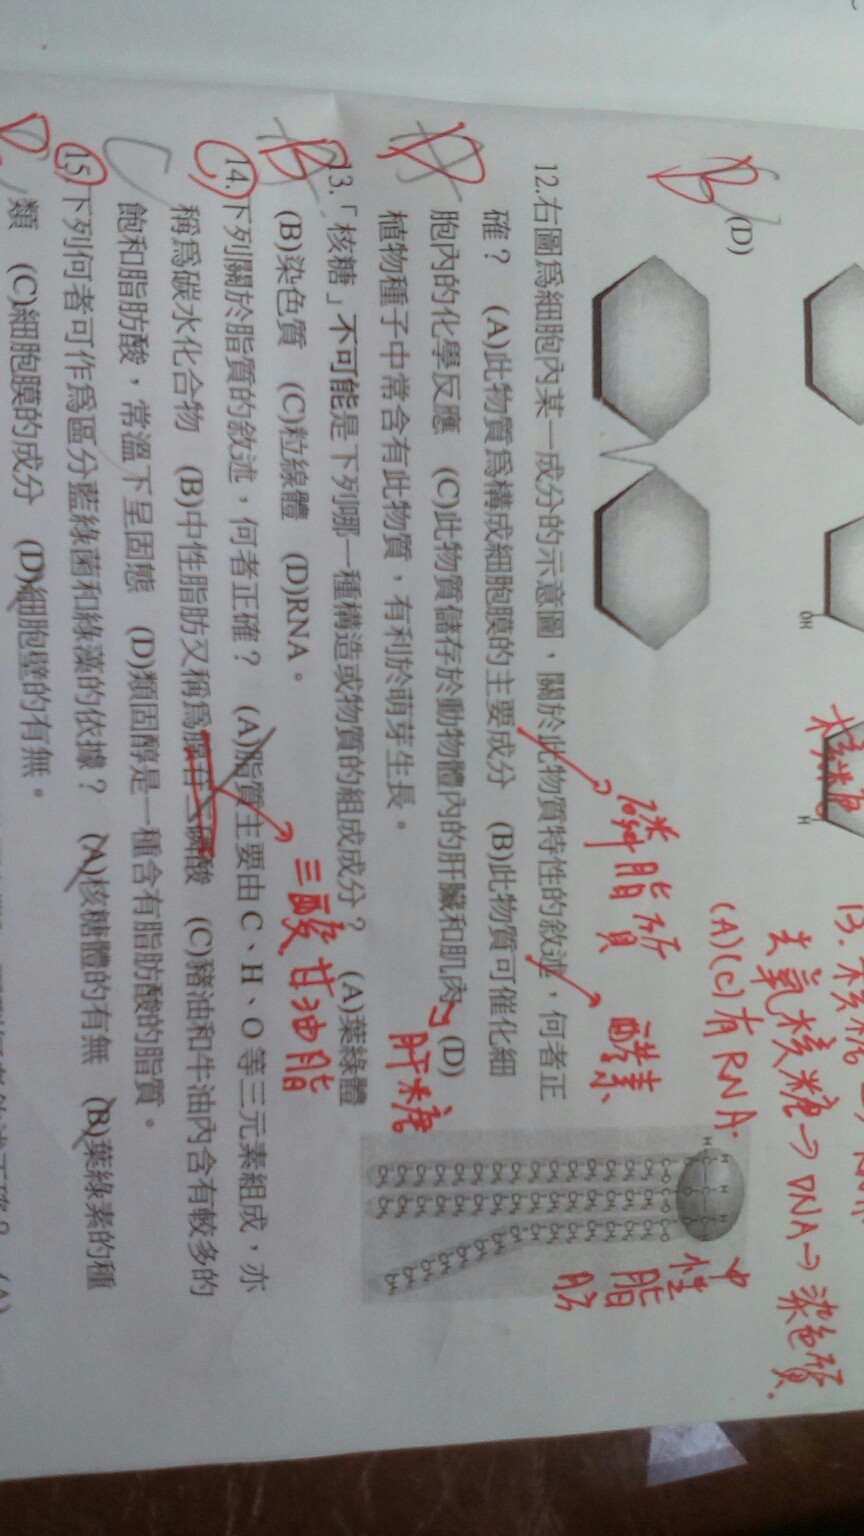 13.核糖
去氧核糖→DNA→染色質.
(A)(C)有RNA.
核糖
OH
H
B
(D)
12.右圖為細胞內某一成分的示意圖，關於此物質特性的敘述，何者正
確？ (A)此物質為構成細胞膜的主要成分 (B)此物質可催化細
胞內的化學反應 (C)此物質儲存於動物體內的肝臟和肌肉 (D)
植物種子中常含有此物質，有利於萌芽生長。
磷脂質
酵素
肝糖
中性脂肪
D
13.「核糖」不可能是下列哪一種構造或物質的組成成分？ (A)葉綠體
(B)染色質 (C)粒線體 (D)RNA。
B
14.下列關於脂質的敘述，何者正確？ (A)脂質主要由C、H、O等三元素組成，亦
稱為碳水化合物 (B)中性脂肪又稱為腺苷三磷酸 (C)豬油和牛油內含有較多的
飽和脂肪酸，常溫下呈固態 (D)類固醇是一種含有脂肪酸的脂質。
三酸甘油脂
C
15.下列何者可作為區分藍綠菌和綠藻的依據？ (A)核糖體的有無 (B)葉綠素的種
類 (C)細胞膜的成分 (D)細胞壁的有無。